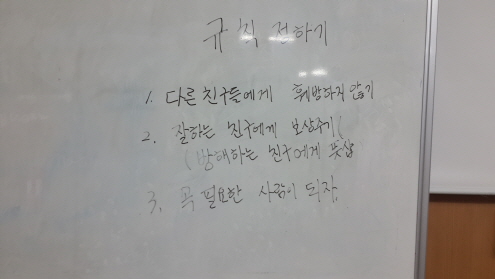 규칙 전하기
1. 다른 친구들에게 훼방하지 않기
2. 잘하는 친구에게 보상주기(
(방해하는 친구에게 뜻삼
3. 꼭 필요한 사람이 되자.